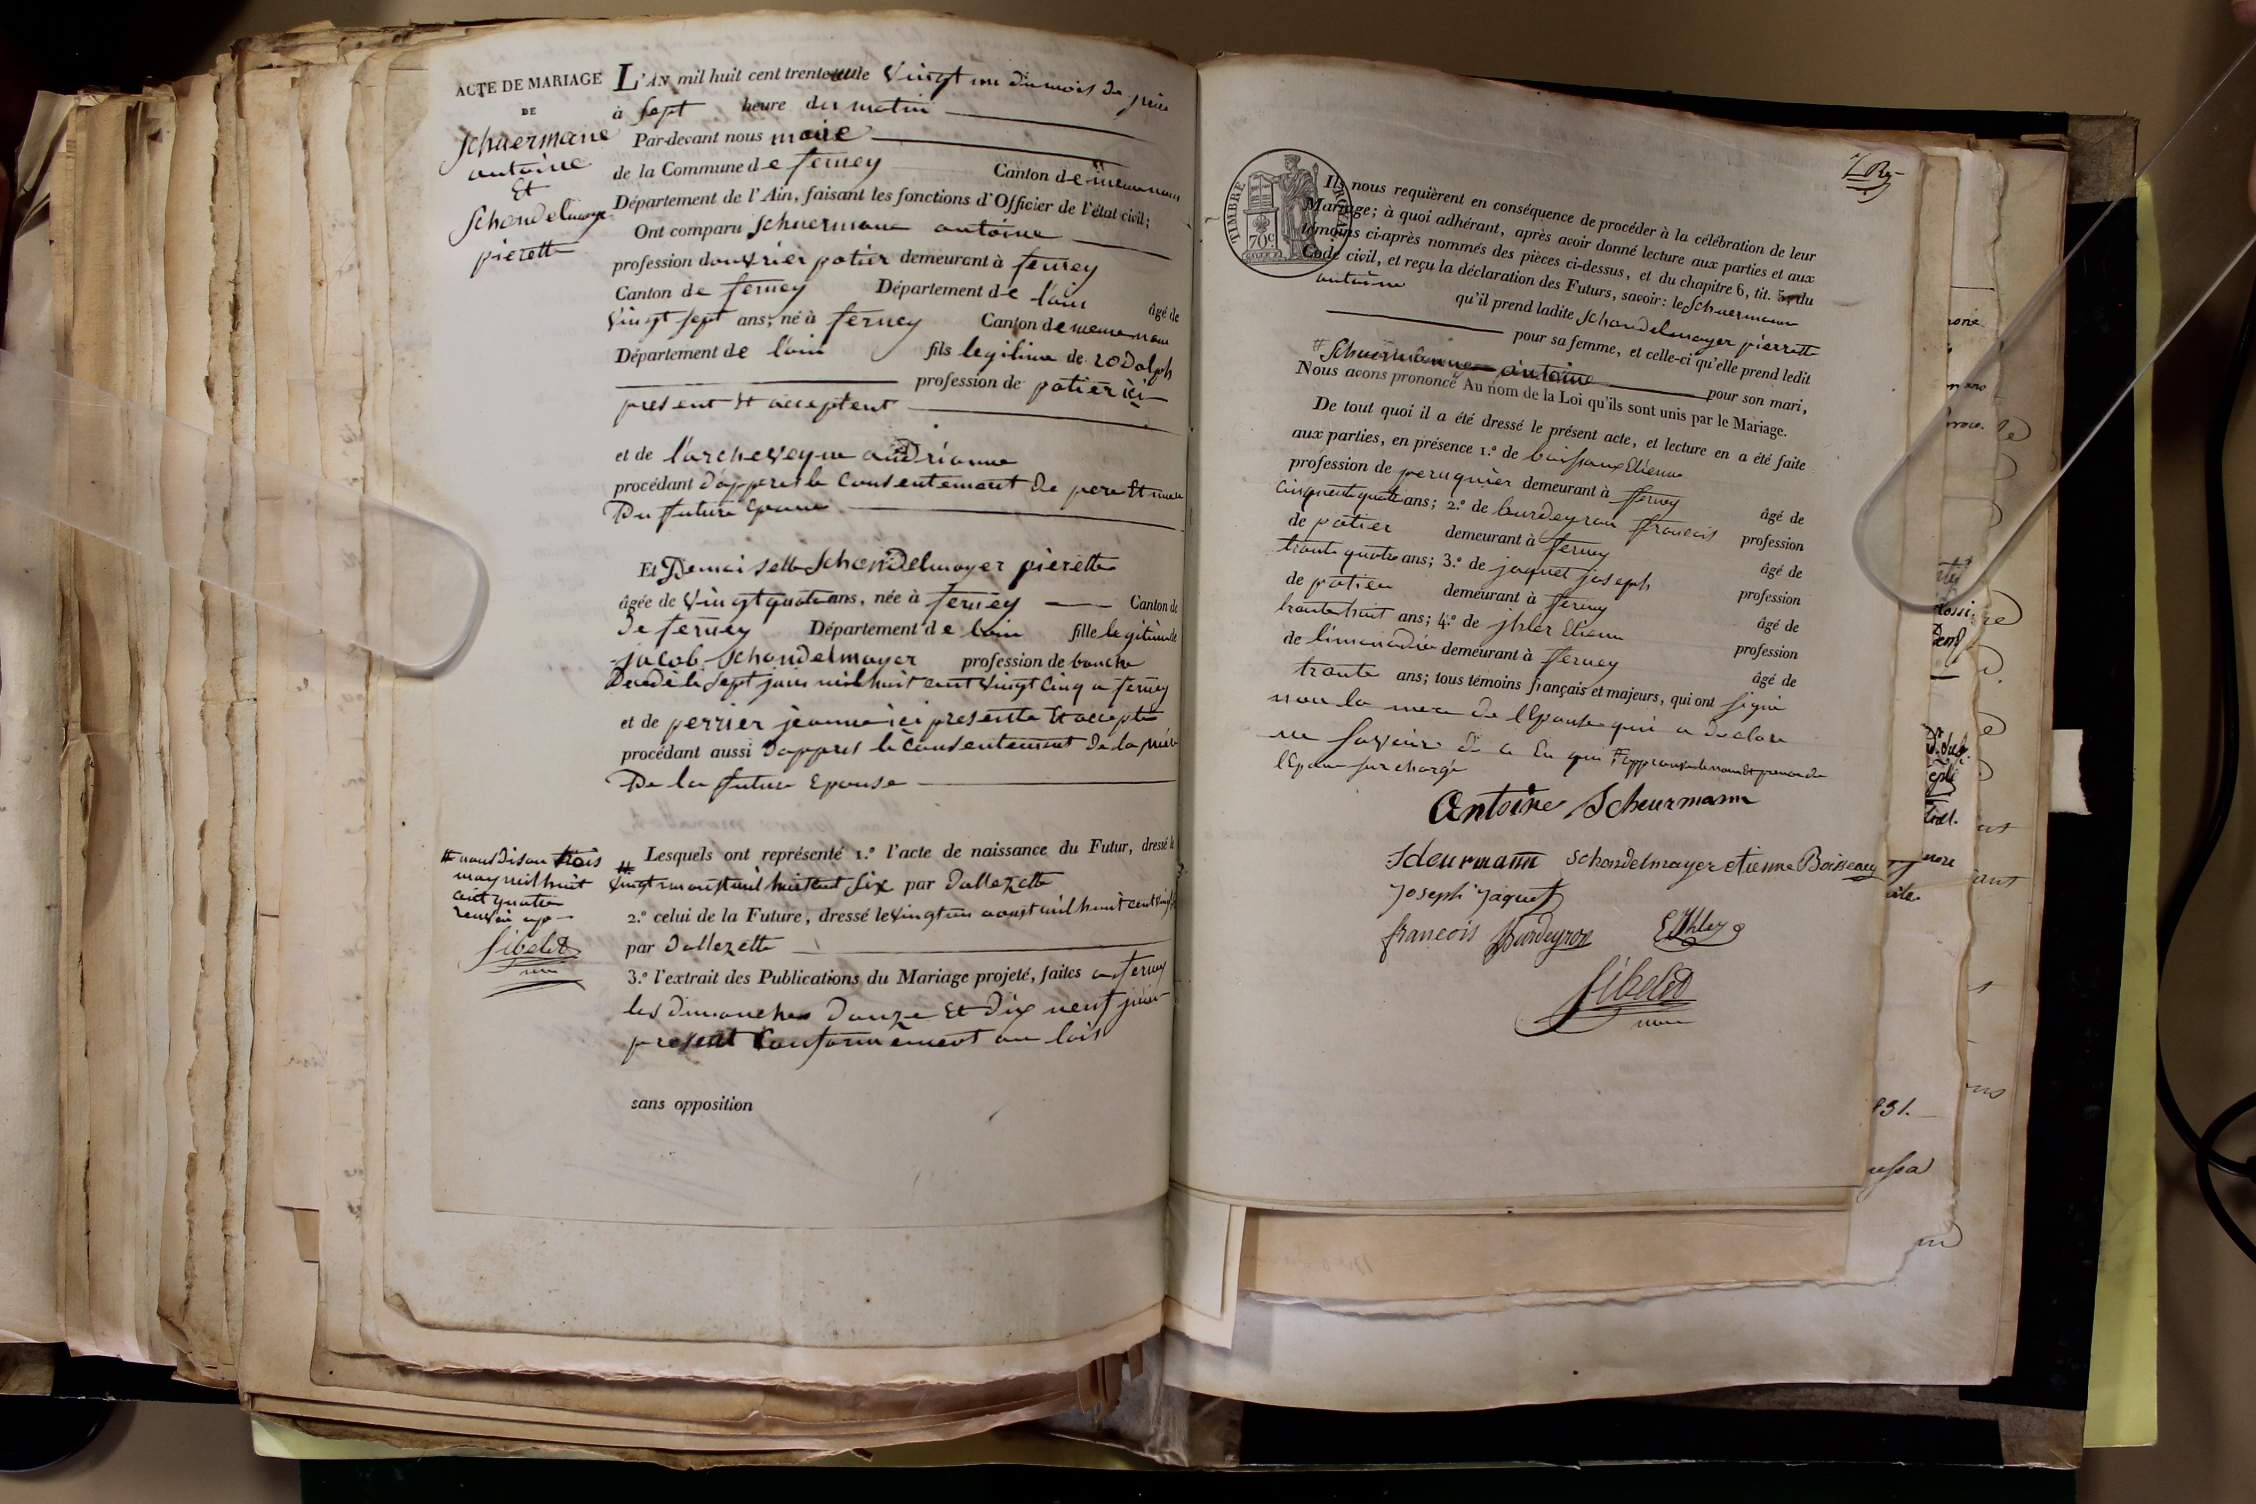 ACTE DE MARIAGE
DE
Schuermane
antoine
Et
Schondelmayer
pierette
L'AN mil huit cent trente un le vingt un du mois de juin
à sept heure du matin
Par-devant nous maire
de la Commune de ferney Canton de meme nom
Département de l'Ain, faisant les fonctions d'Officier de l'état civil;
Ont comparu Schuermane antoine
profession douvrier potier demeurant à ferney
Canton de ferney Département de lain âgé de
vingt sept ans; né à ferney Canton de meme nom
Département de lain fils legitime de rodolph
profession de potier ici
present et acceptent
et de larcheveque
procédant dappres le Consentement de pere Et mere
Du future Epoux
Et Demoiselle Schondelmayer pierette
âgée de vingt quatre ans, née à ferney Canton de
de ferney Département de lain fille legitime de
jacob Schondelmayer profession de bouche
Decedé le sept juin mil huit cent vingt cinq a ferney
et de perrier jeanne ici presente Et accepte
procédant aussi dappres le consentement De la mere
De la future Epouse
Lesquels ont représenté 1.º l'acte de naissance du Futur, dressé le
mil huit cent six par dallezette
2.º celui de la Future, dressé le vingt un aoust mil huit cent
par dallezette
3.º l'extrait des Publications du Mariage projeté, faites a ferney
les dimanches douze Et dix neuf juin
present Conformement au lois
sans opposition
# nous disons trois
may mil huit
cent quatre
renvoi
fibelet
maire
TIMBRE ROYAL
70c
Ils nous requièrent en conséquence de procéder à la célébration de leur
Mariage; à quoi adhérant, après avoir donné lecture aux parties et aux
témoins ci-après nommés des pièces ci-dessus, et du chapitre 6, tit. 5, du
Code civil, et reçu la déclaration des Futurs, savoir: le Schuermann
antoine qu'il prend ladite Schondelmayer pierrette
pour sa femme, et celle-ci qu'elle prend ledit
# Schuermanne antoine pour son mari,
Nous avons prononcé Au nom de la Loi qu'ils sont unis par le Mariage.
De tout quoi il a été dressé le présent acte, et lecture en a été faite
aux parties, en présence 1.º de boissaux Etienne
profession de peruquier demeurant à ferney âgé de
cinquente quatre ans; 2.º de burdeyron francois profession
de potier demeurant à ferney âgé de
trante quatre ans; 3.º de jaquet joseph profession
de potier demeurant à ferney âgé de
trante huit ans; 4.º de jhler Etienne profession
de limonadier demeurant à ferney âgé de
trante ans; tous témoins français et majeurs, qui ont signé
non la mere de lEpouse qui a declare
ne savoir
lEpoux surchargé
Antoine Scheurmann
Scheurmann schondelmayer etienne Boisseaux
joseph jaquet
francois Burdeyron E Jhler
fibelet
maire
831.